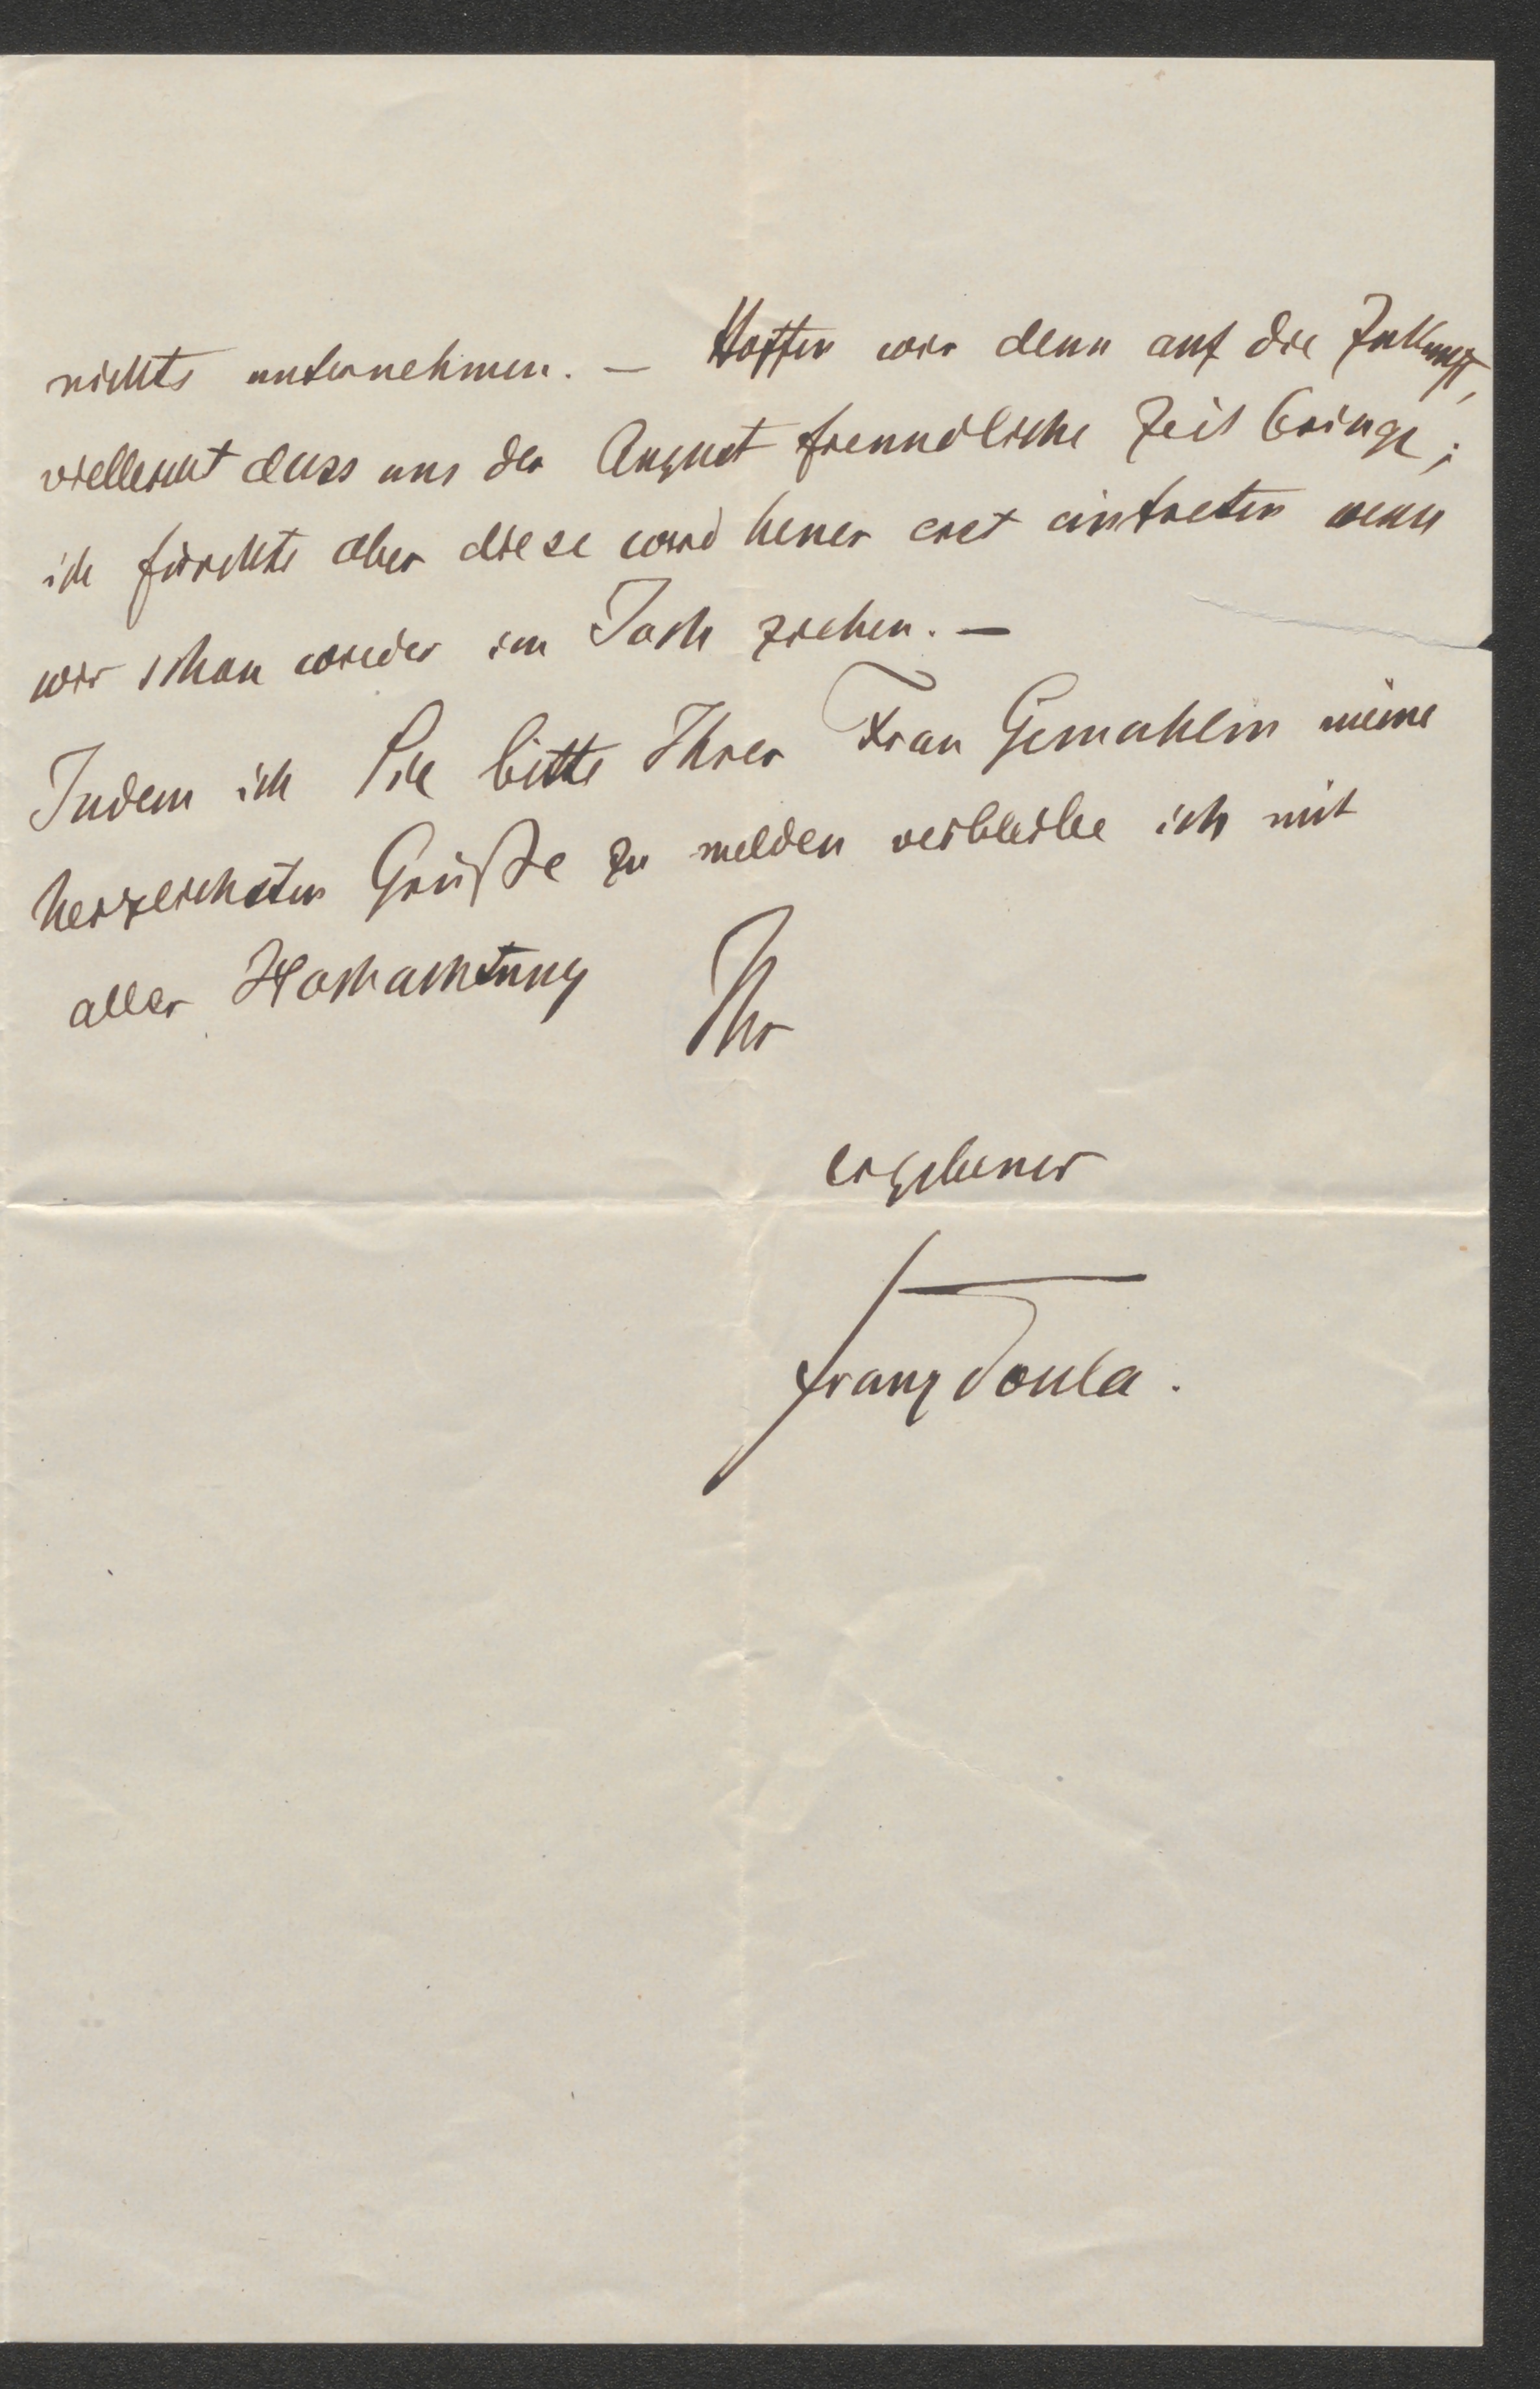 nichts unternehmen. – Hoffen wir denn auf die Zukunft,
vielleicht dass uns der August freundliche Zeit bringe;
ich fürchte aber diese wird heuer erst eintreten wenn
wir schon wieder im Joch ziehen. –
Indem ich Sie bitte Ihrer Frau Gemahlin meine
herzlichsten Grüße zu melden verbleibe ich mit
aller Hochachtung Ihr
ergebener
Franz Toula.